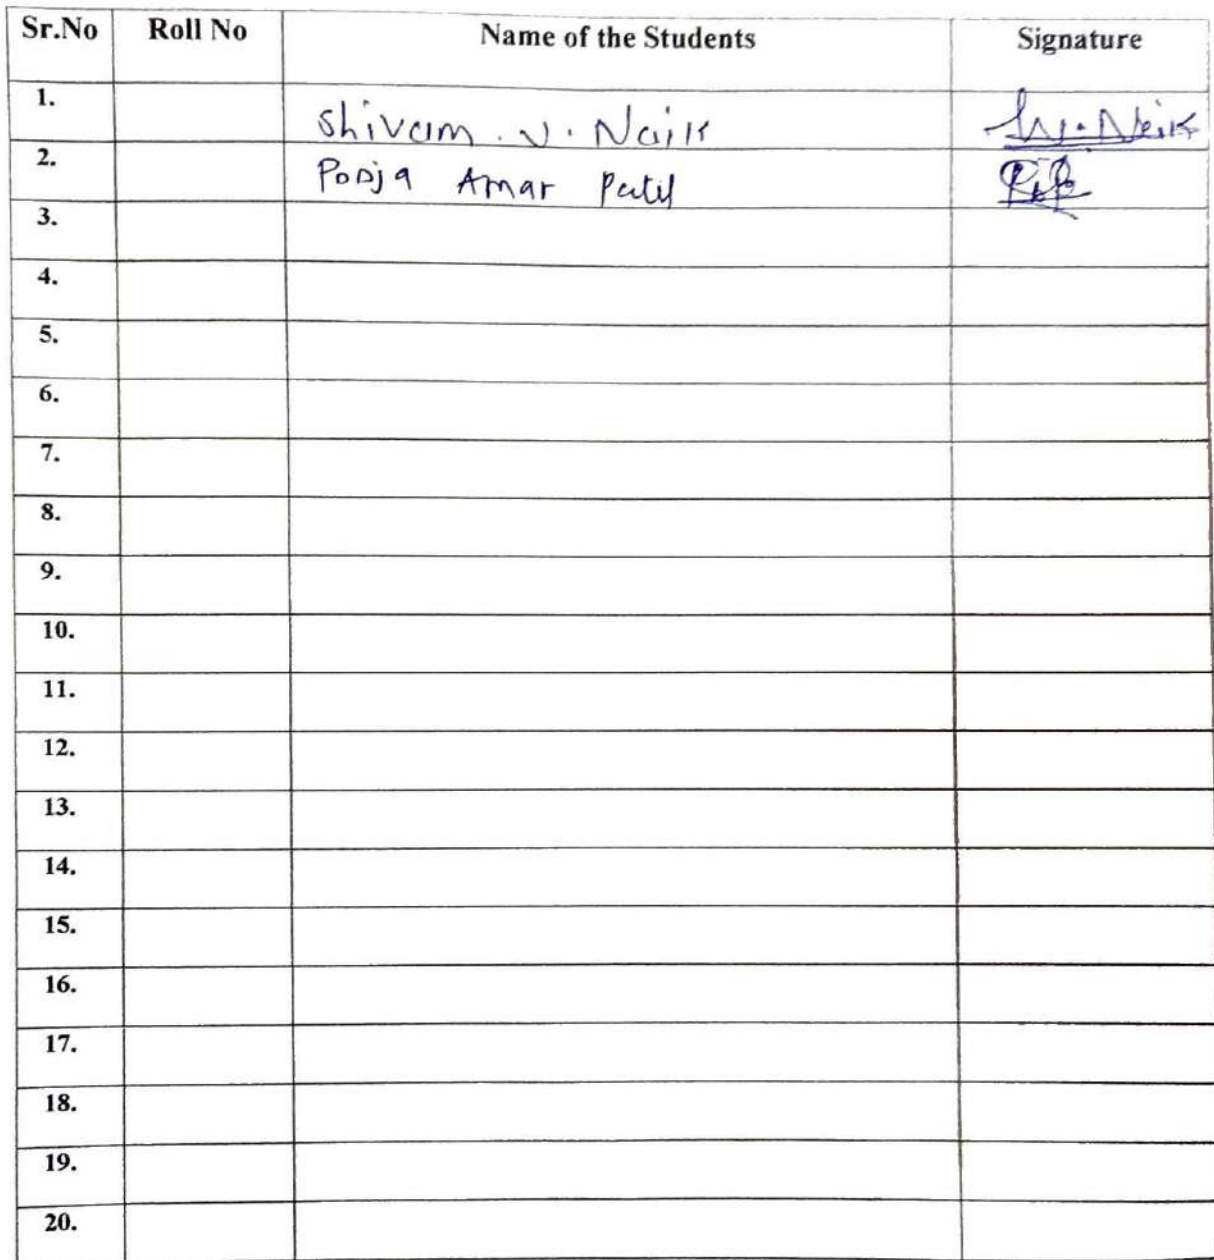 Sr.No Roll No Name of the Students Signature
1. Shivam . V. Naik
2. Pooja Amar Patil
3.
4.
5.
6.
7.
8.
9.
10.
11.
12.
13.
14.
15.
16.
17.
18.
19.
20.